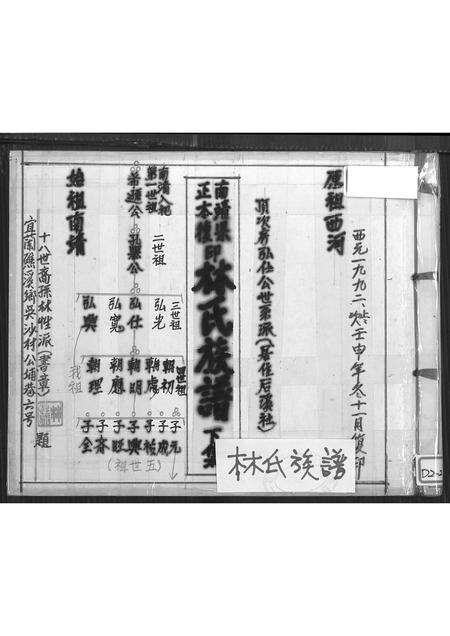 原祖西河
西元一九九二、歲壬申年冬十一月復印
頂次房弘仕公世系派(居住后溪社)
南靖梁
正本種印
林氏族譜
下集
林氏族譜
南靖入祀
第一世祖
希遜公
二世祖
孔異公
三世祖
弘光
弘仕
弘寬
弘興
四世祖
朝初
朝處
朝明
朝應
朝理
我祖
子元
子成
子裕
子興
子旺
子齊
子全
(五世祖)
始祖南靖
十八世裔孫林性派(書章)
宜蘭礁溪鄉吳沙村公埔巷六号
題
D2-2